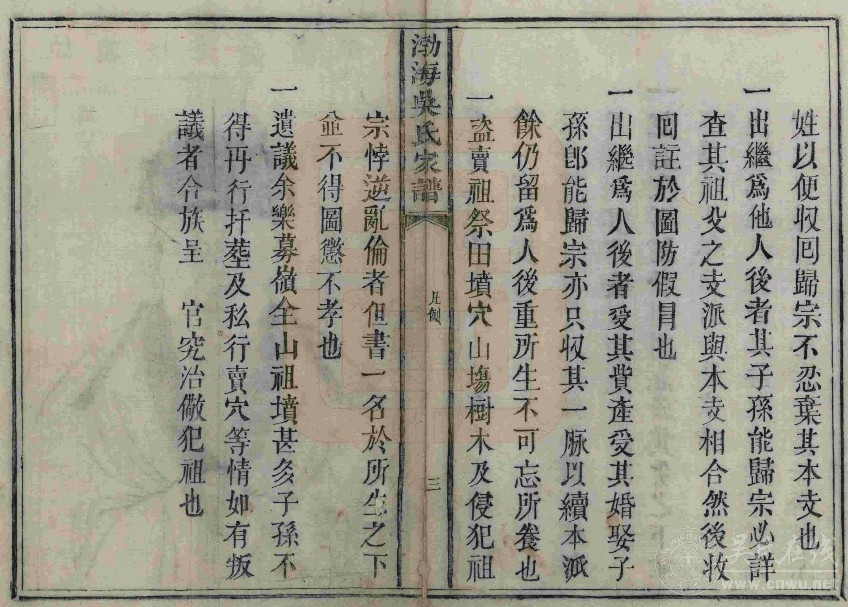 姓以便収囘歸宗不忍棄其本支也
一出繼爲他人後者其子孫能歸宗必詳
查其祖父之支派與本支相合然後收
囘註於圖防假冒也
一出繼爲人後者受其貲產受其婚娶子
孫郎能歸宗亦只収其一脈以續本派
餘仍留爲人後重所生不可忘所養也
一盜賣祖祭田墳穴山塲樹木及侵犯祖
渤海吳氏家譜
凡例
三
宗悖逆亂倫者但書一名於所生之下
並不得圖懲不孝也
一遺議余樂募嶺全山祖墳甚多子孫不
得再行扦塟及私行賣穴等情如有叛
議者合族呈 官究治儆犯祖也
吳氏在线
www.cnwu.net